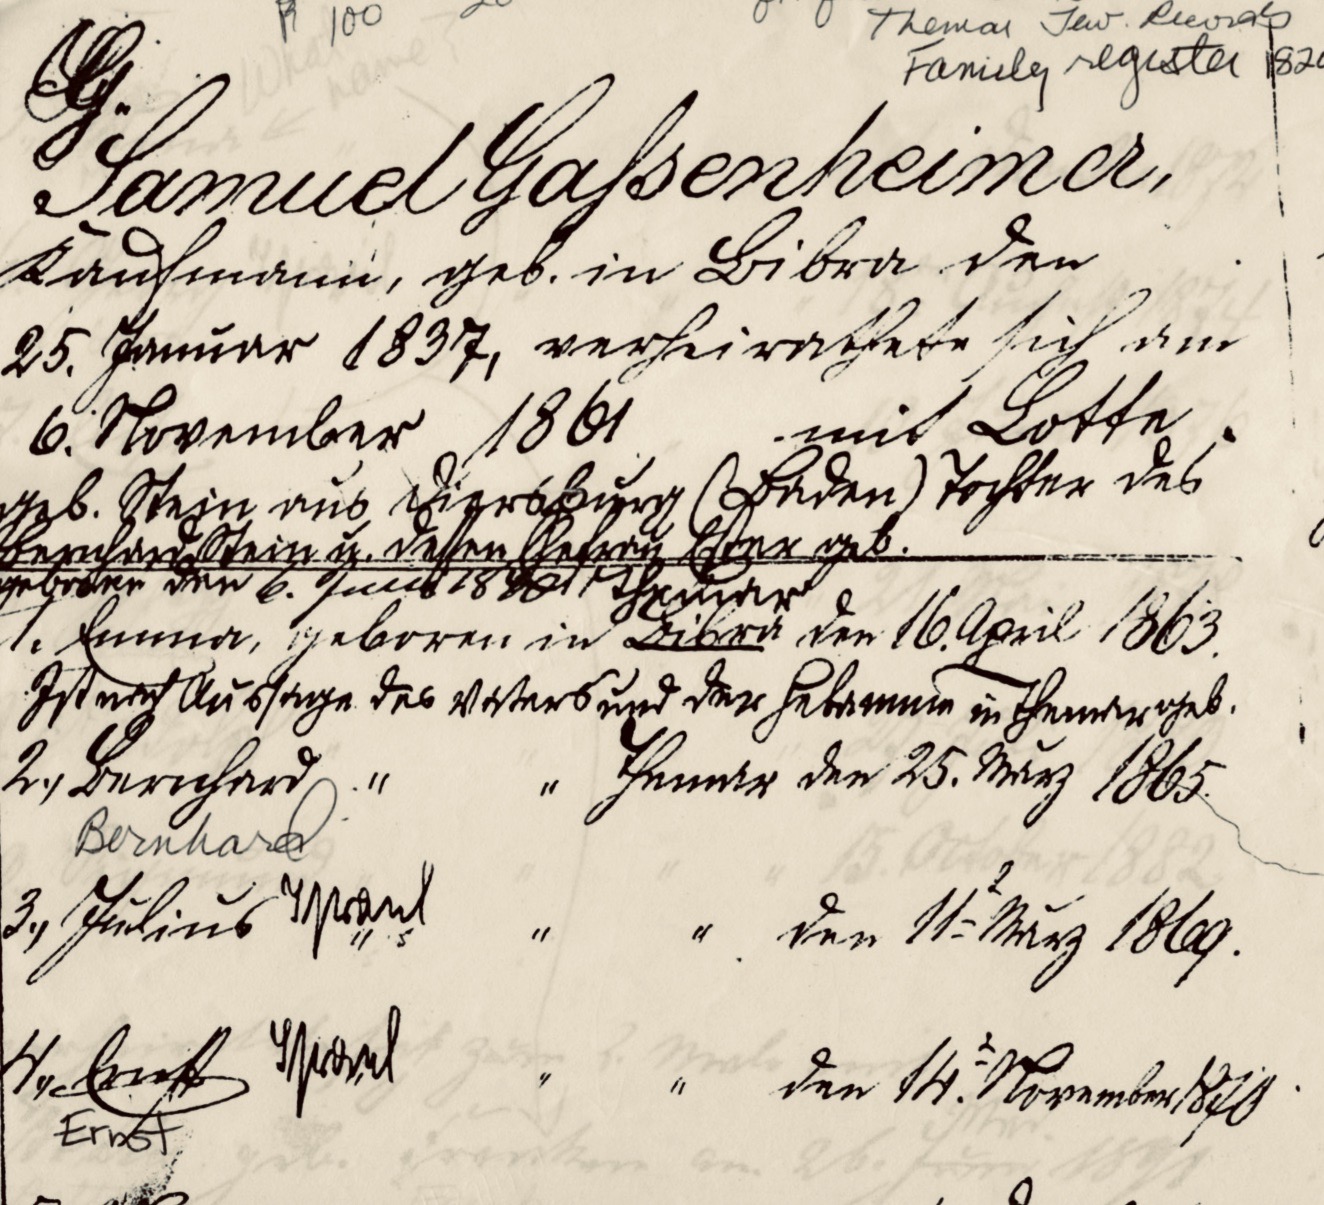 R 100 20
Themar Jew. Records
Family register 182
What name?
G.
Samuel Gaßenheimer,
Kaufmann, geb. in Bibra den
25. Januar 1837, verheirathete sich am
6. November 1861 mit Lotte
geb. Stein aus Diersburg (Baden) Tochter des
Bernhard Stein u. dessen Ehefrau Ester geb.
geboren den 6. Juni 18
Themar
1. Emma, geboren in Bibra den 16. April 1863.
Ist nach Aussage des Vaters und der Hebamme in Themar geb.
2., Bernhard " " Themar den 25. März 1865.
Bernhard
3., Julius Israel " " " den 11. März 1869.
4., Ernst Israel " " den 14. November 1870.
Ernst